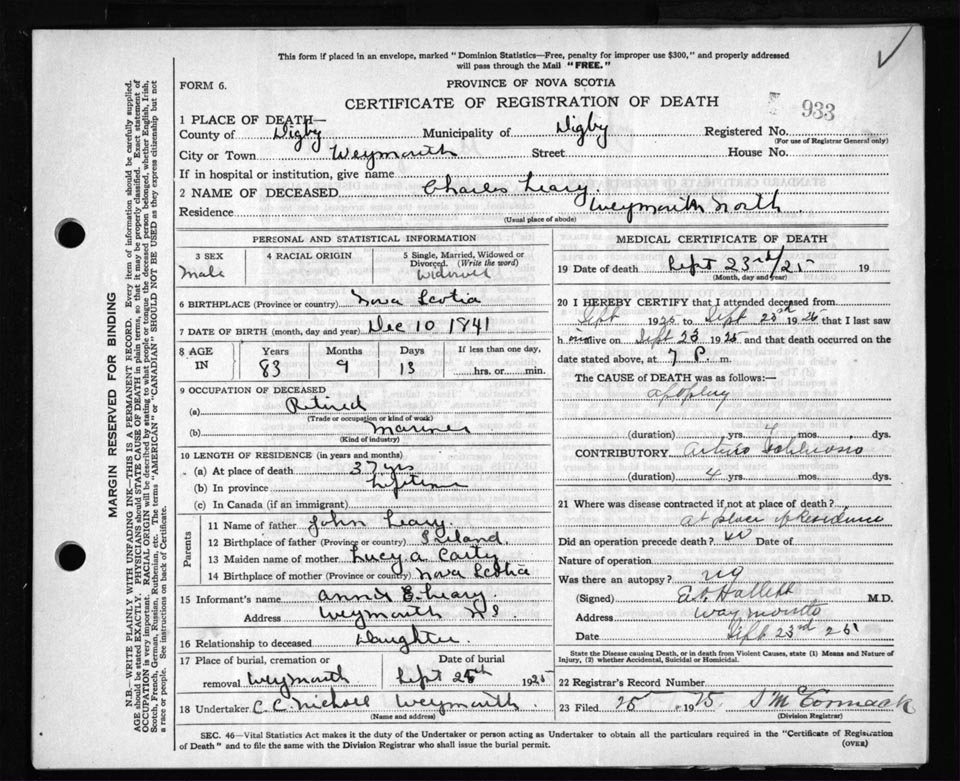 This form if placed in an envelope, marked "Dominion Statistics—Free, penalty for improper use $300," and properly addressed
will pass through the Mail "FREE."
FORM 6.
PROVINCE OF NOVA SCOTIA
CERTIFICATE OF REGISTRATION OF DEATH
933
1 PLACE OF DEATH—
County of Digby Municipality of Digby Registered No.
(For use of Registrar General only)
City or Town Weymouth Street House No.
If in hospital or institution, give name
2 NAME OF DECEASED Charles Leary.
Residence Weymouth North.
(Usual place of abode)
PERSONAL AND STATISTICAL INFORMATION
3 SEX 4 RACIAL ORIGIN 5 Single, Married, Widowed or
Divorced. (Write the word)
Male Widowed
6 BIRTHPLACE (Province or country) Nova Scotia
7 DATE OF BIRTH (month, day and year) Dec 10 1841
8 AGE IN Years Months Days If less than one day,
83 9 13 hrs. or min.
9 OCCUPATION OF DECEASED
(a) Retired
(Trade or occupation or kind of work)
(b) Mariner
(Kind of industry)
10 LENGTH OF RESIDENCE (in years and months)
(a) At place of death 37 yrs
(b) In province Lifetime
(c) In Canada (if an immigrant)
Parents
11 Name of father John Leary.
12 Birthplace of father (Province or country) Ireland.
13 Maiden name of mother Lucy A Carty
14 Birthplace of mother (Province or country) Nova Scotia
15 Informant's name Annie E. Leary.
Address Weymouth N S
16 Relationship to deceased Daughter.
17 Place of burial, cremation or Date of burial
removal Weymouth Sept 25th 1925
18 Undertaker C. C. Nicholl Weymouth.
(Name and address)
MEDICAL CERTIFICATE OF DEATH
19 Date of death Sept 23rd/25 19
(Month, day and year)
20 I HEREBY CERTIFY that I attended deceased from
Sept 1925 to Sept 23rd 1925 that I last saw
h im alive on Sept 23 1925 and that death occurred on the
date stated above, at 7 P. m.
The CAUSE of DEATH was as follows:—
apoplexy
(duration) yrs. mos. dys.
CONTRIBUTORY
(duration) 4 yrs. mos. dys.
21 Where was disease contracted if not at place of death?
at place of Residence
Did an operation precede death? no Date of
Nature of operation
Was there an autopsy? no
(Signed) Hallett M.D.
Address Weymouth
Date Sept 23rd 25
State the Disease causing Death, or in death from Violent Causes, state (1) Means and Nature of
Injury, (2) whether Accidental, Suicidal or Homicidal.
22 Registrar's Record Number
23 Filed 25 1925. McCormack
(Division Registrar)
SEC. 46—Vital Statistics Act makes it the duty of the Undertaker or person acting as Undertaker to obtain all the particulars required in the "Certificate of Registration
of Death" and to file same with the Division Registrar who shall issue the burial permit.
(OVER)
MARGIN RESERVED FOR BINDING
N.B.—WRITE PLAINLY WITH UNFADING INK—THIS IS A PERMANENT RECORD. Every item of information should be carefully supplied.
AGE should be stated EXACTLY. PHYSICIANS should STATE CAUSE OF DEATH in plain terms, so that it may be properly classified. Exact statement of
OCCUPATION is very important. RACIAL ORIGIN will be described by stating to what people or tongue the deceased person belonged, whether English, Irish,
Scotch, French, German, Russian, Ruthenian, etc. The terms "AMERICAN" or "CANADIAN" SHOULD NOT BE USED as they express citizenship but not
a race or people. See instructions on back of Certificate.